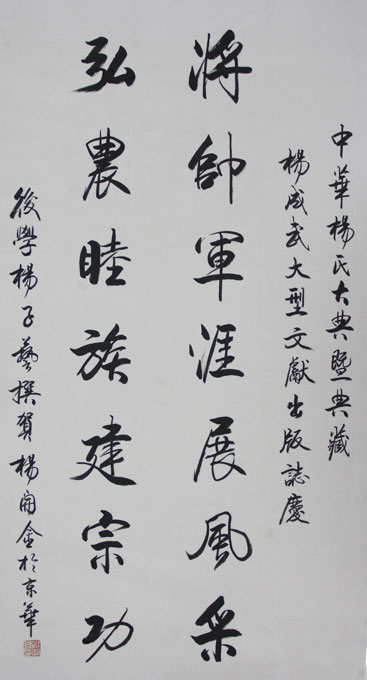 中華楊氏大典暨典藏
楊成武大型文獻出版誌慶
將帥軍涯展風采
弘農睦族建宗功
後學楊子藝撰賀楊開金於京華